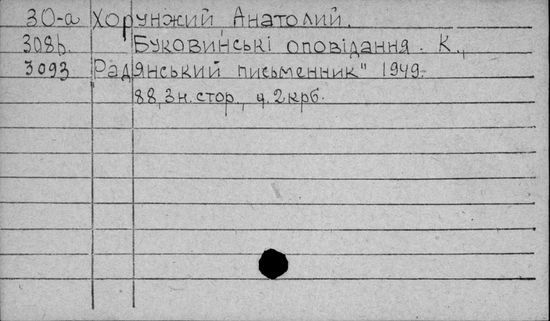 30-а Хорунжий Анатолий.
308б. Буковинські оповідання. К.,
3093 Радянський письменник" 1949.
88,3н. стор., ц. 2крб.